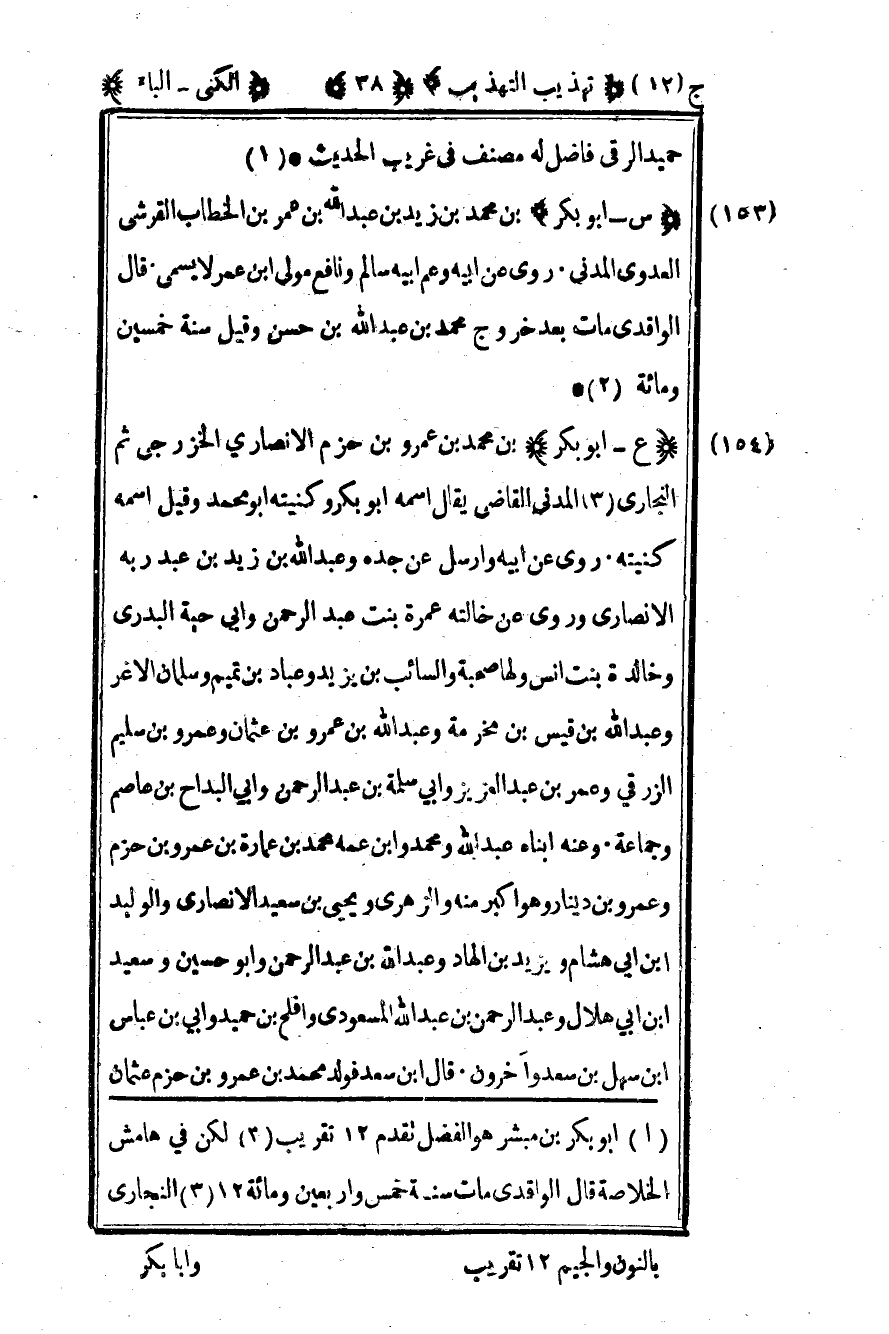 ج (١٢) ﴿ تهذيب التهذيب ﴾ ﴿ ٣٨ ﴾ ﴿ الكنى ـ الباء ﴾
حميد الرقى فاضل له مصنف فى غريب الحديث * (١)
(١٥٣) ﴿ س ـ ابو بكر ﴾ بن محمد بن زيد بن عبدالله بن عمر بن الخطاب القرشى
العدوى المدنى ٠ روى عن ابيه وعم ابيه سالم ونافع مولى ابن عمر لا يسمى ٠ قال
الواقدى مات بعد خروج محمد بن عبدالله بن حسن وقيل سنة خمسين
ومائة (٢) *
(١٥٤) ﴿ ع ـ ابو بكر ﴾ بن محمد بن عمرو بن حزم الانصاري الخزرجى ثم
النجارى (٣) المدنى القاضى يقال اسمه ابو بكر وكنيته ابو محمد وقيل اسمه
كنيته ٠ روى عن ابيه وارسل عن جده وعبدالله بن زيد بن عبد ربه
الانصارى وروى عن خالته عمرة بنت عبد الرحمن وابي حبة البدرى
وخالدة بنت انس ولها صحبة والسائب بن يزيد وعباد بن تميم وسلمان الاغر
وعبدالله بن قيس بن مخرمة وعبدالله بن عمرو بن عثمان وعمرو بن سليم
الزرقي وعمر بن عبدالعزيز وابي سلمة بن عبدالرحمن وابي البداح بن عاصم
وجماعة ٠ وعنه ابناه عبدالله ومحمد وابن عمه محمد بن عمارة بن عمرو بن حزم
وعمرو بن دينار وهو اكبر منه والزهرى ويحيى بن سعيد الانصارى والوليد
ابن ابي هشام ويزيد بن الهاد وعبدالله بن عبدالرحمن وابو حسين وسعيد
ابن ابي هلال وعبدالرحمن بن عبدالله المسعودى وافلح بن حميد وابي بن عباس
ابن سهل بن سعد وآخرون ٠ قال ابن سعد فولد محمد بن عمرو بن حزم عثمان
(١) ابو بكر بن مبشر هو الفضل تقدم ١٢ تقريب (٢) لكن في هامش
الخلاصة قال الواقدى مات سنة خمس واربعين ومائة ١٢ (٣) النجارى
بالنون والجيم ١٢ تقريب وابا بكر